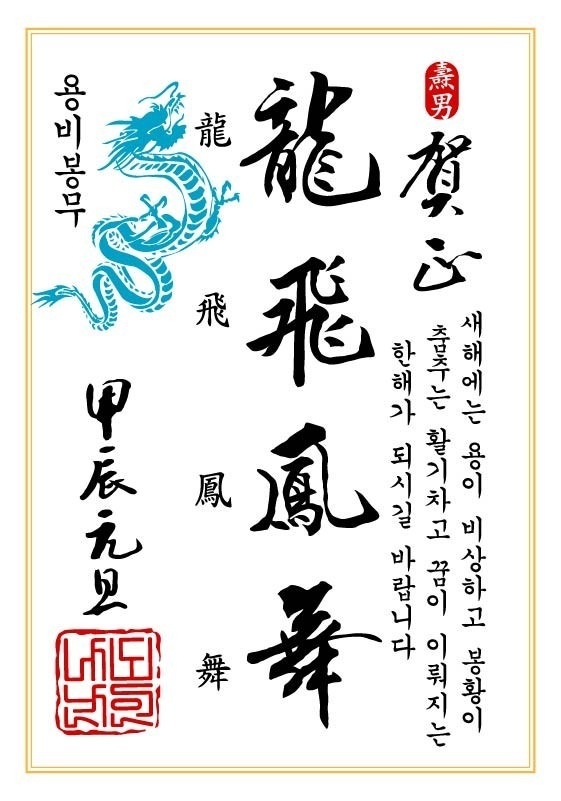 燾男
賀正
새해에는 용이 비상하고 봉황이
춤추는 활기차고 꿈이 이뤄지는
한해가 되시길 바랍니다
龍飛鳳舞
龍飛鳳舞
용비봉무
甲辰元旦